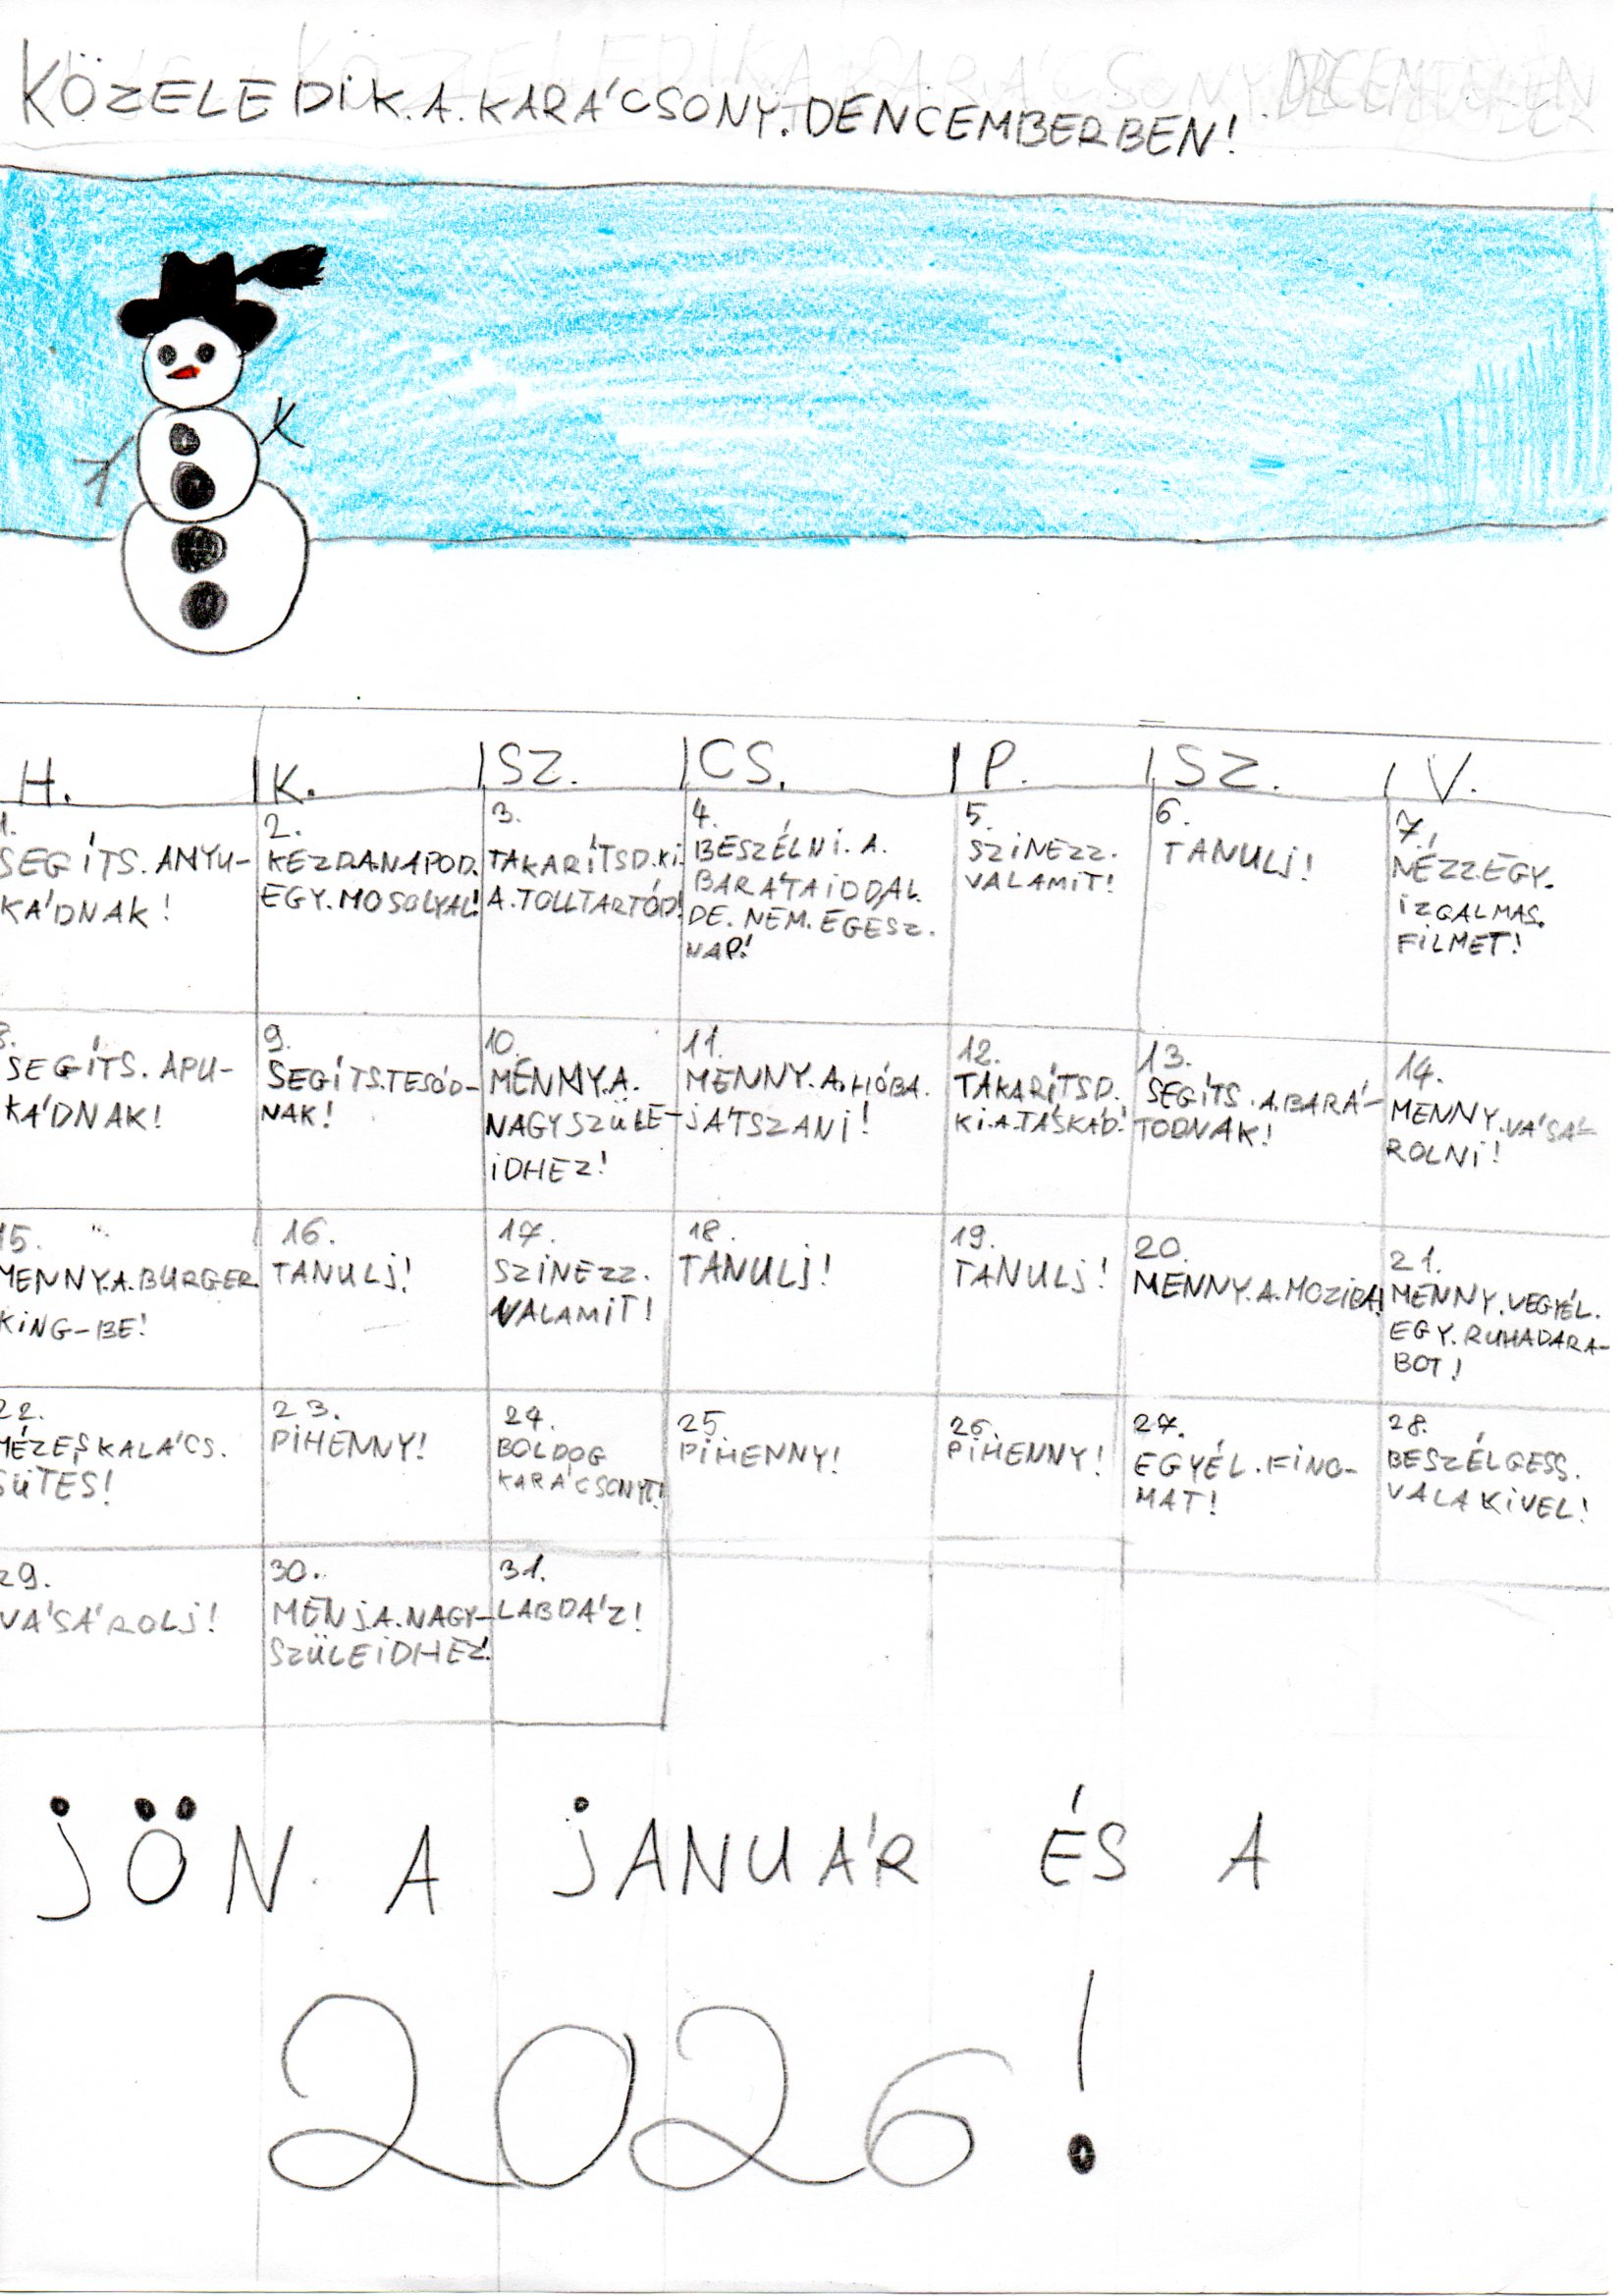 KÖZELEDIK.A.KARÁCSONY.DENCEMBERBEN!
H. K. SZ. CS. P. SZ. V.
1.
SEGÍTS.ANYU-
KÁDNAK!
2.
KEZDA.NAPOD.
EGY.MOSOLYAL!
3.
TAKARÍTSD.KI.
A.TOLLTARTÓD!
4.
BESZÉLNI.A.
BARÁTAIDDAL.
DE.NEM.EGÉSZ.
NAP!
5.
SZINEZZ.
VALAMIT!
6.
TANULJ!
7.
NÉZZ.EGY.
IZGALMAS.
FILMET!
8.
SEGÍTS.APU-
KÁDNAK!
9.
SEGÍTS.TESÓD-
NAK!
10.
MENNY.A.
NAGYSZÜLE-
IDHEZ!
11.
MENNY.A.HÓBA.
JÁTSZANI!
12.
TAKARÍTSD.
KI.A.TÁSKÁD!
13.
SEGÍTS.A.BARÁ-
TODNAK!
14.
MENNY.VÁSÁ-
ROLNI!
15.
MENNY.A.BURGER
KING-BE!
16.
TANULJ!
17.
SZINEZZ.
VALAMIT!
18.
TANULJ!
19.
TANULJ!
20.
MENNY.A.MOZIBA!
21.
MENNY.VEGYÉL.
EGY.RUHADARA-
BOT!
22.
MÉZESKALÁCS.
SÜTES!
23.
PIHENNY!
24.
BOLDOG
KARÁCSONYT!
25.
PIHENNY!
26.
PIHENNY!
27.
EGYÉL.FINO-
MAT!
28.
BESZÉLGESS.
VALAKIVEL!
29.
VÁSÁROLJ!
30.
MENJ.A.NAGY-
SZÜLEIDHEZ!
31.
LABDÁZ!
JÖN A JANUÁR ÉS A
2026!